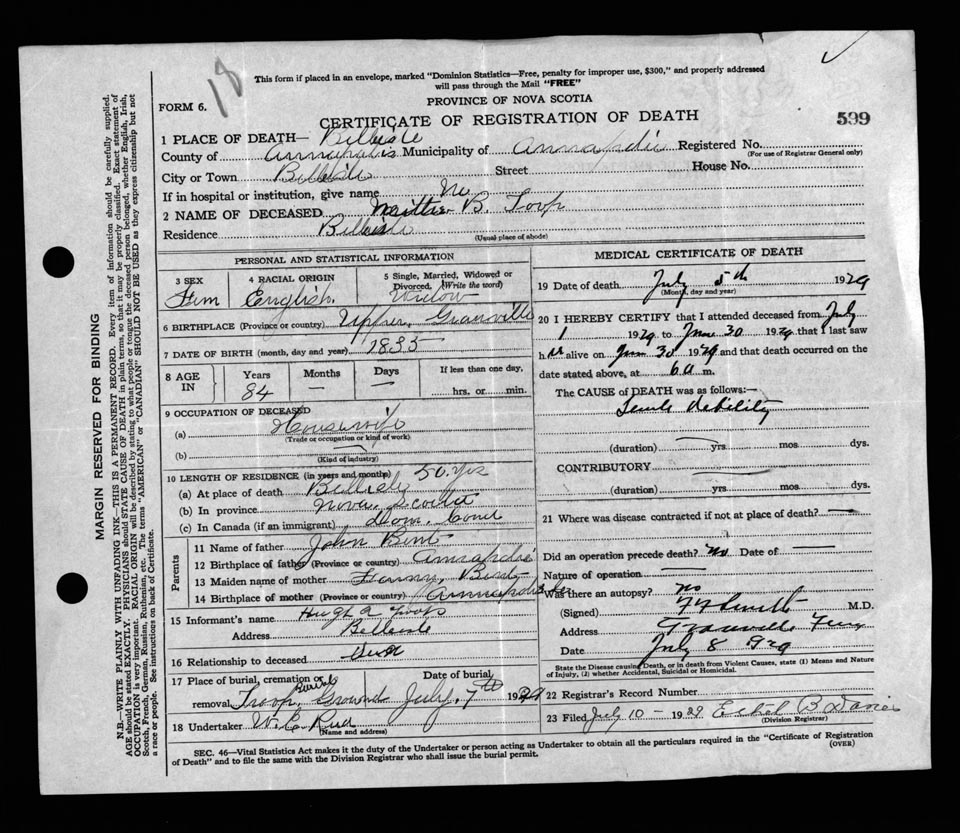 18
This form if placed in an envelope, marked "Dominion Statistics—Free, penalty for improper use, $300," and properly addressed
will pass through the Mail "FREE"
FORM 6.
PROVINCE OF NOVA SCOTIA
CERTIFICATE OF REGISTRATION OF DEATH
599
1 PLACE OF DEATH— Bellisle
County of Annapolis Municipality of Annapolis Registered No.
(For use of Registrar General only)
City or Town Bellisle Street House No.
If in hospital or institution, give name No
2 NAME OF DECEASED B. Troop
Residence Bellisle
(Usual place of abode)
PERSONAL AND STATISTICAL INFORMATION
3 SEX Fem
4 RACIAL ORIGIN English.
5 Single, Married, Widowed or
Divorced. (Write the word)
Widow
6 BIRTHPLACE (Province or country) Upper Granville
7 DATE OF BIRTH (month, day and year) 1835
8 AGE IN
Years Months Days If less than one day,
84 — — hrs. or min.
9 OCCUPATION OF DECEASED
(a) Housewife
(Trade or occupation or kind of work)
(b)
(Kind of industry)
10 LENGTH OF RESIDENCE (in years and months) 50 yrs
(a) At place of death Bellisle
(b) In province Nova Scotia
(c) In Canada (if an immigrant) Dom.
Parents
11 Name of father John Bent
12 Birthplace of father (Province or country) Annapolis
13 Maiden name of mother Fanny Bent
14 Birthplace of mother (Province or country) Annapolis
15 Informant's name Hugh A Troop
Address Bellisle
16 Relationship to deceased
17 Place of burial, cremation or Date of burial
Burial
removal Troop Ground July, 7th 1929
18 Undertaker W. E. Reed
(Name and address)
MEDICAL CERTIFICATE OF DEATH
19 Date of death July 5th 1929
(Month, day and year)
20 I HEREBY CERTIFY that I attended deceased from July
1 1929 to June 30 1929 that I last saw
her alive on June 30 1929 and that death occurred on the
date stated above, at 6 a m.
The CAUSE of DEATH was as follows:—
Senile debility
(duration) yrs mos. dys.
CONTRIBUTORY
(duration) yrs mos dys.
21 Where was disease contracted if not at place of death? —
Did an operation precede death? No Date of —
Nature of operation —
Was there an autopsy? No
(Signed) M.D.
Address Granville Ferry
Date July 8 929
State the Disease causing Death, or in death from Violent Causes, state (1) Means and Nature
of Injury, (2) whether Accidental, Suicidal or Homicidal.
22 Registrar's Record Number
23 Filed July 10 - 1929 Ethel B
(Division Registrar)
SEC. 46—Vital Statistics Act makes it the duty of the Undertaker or person acting as Undertaker to obtain all the particulars required in the "Certificate of Registration
of Death" and to file the same with the Division Registrar who shall issue the burial permit.
(OVER)
MARGIN RESERVED FOR BINDING
N.B.—WRITE PLAINLY WITH UNFADING INK—THIS IS A PERMANENT RECORD. Every item of information should be carefully supplied.
AGE should be stated EXACTLY. PHYSICIANS should STATE CAUSE OF DEATH in plain terms, so that it may be properly classified. Exact statement of
OCCUPATION is very important. RACIAL ORIGIN will be described by stating to what people or tongue the deceased person belonged, whether English, Irish,
Scotch, French, German, Russian, Ruthenian, etc. The terms "AMERICAN" or "CANADIAN" SHOULD NOT BE USED as they express citizenship but not
a race or people. See instructions on back of Certificate.